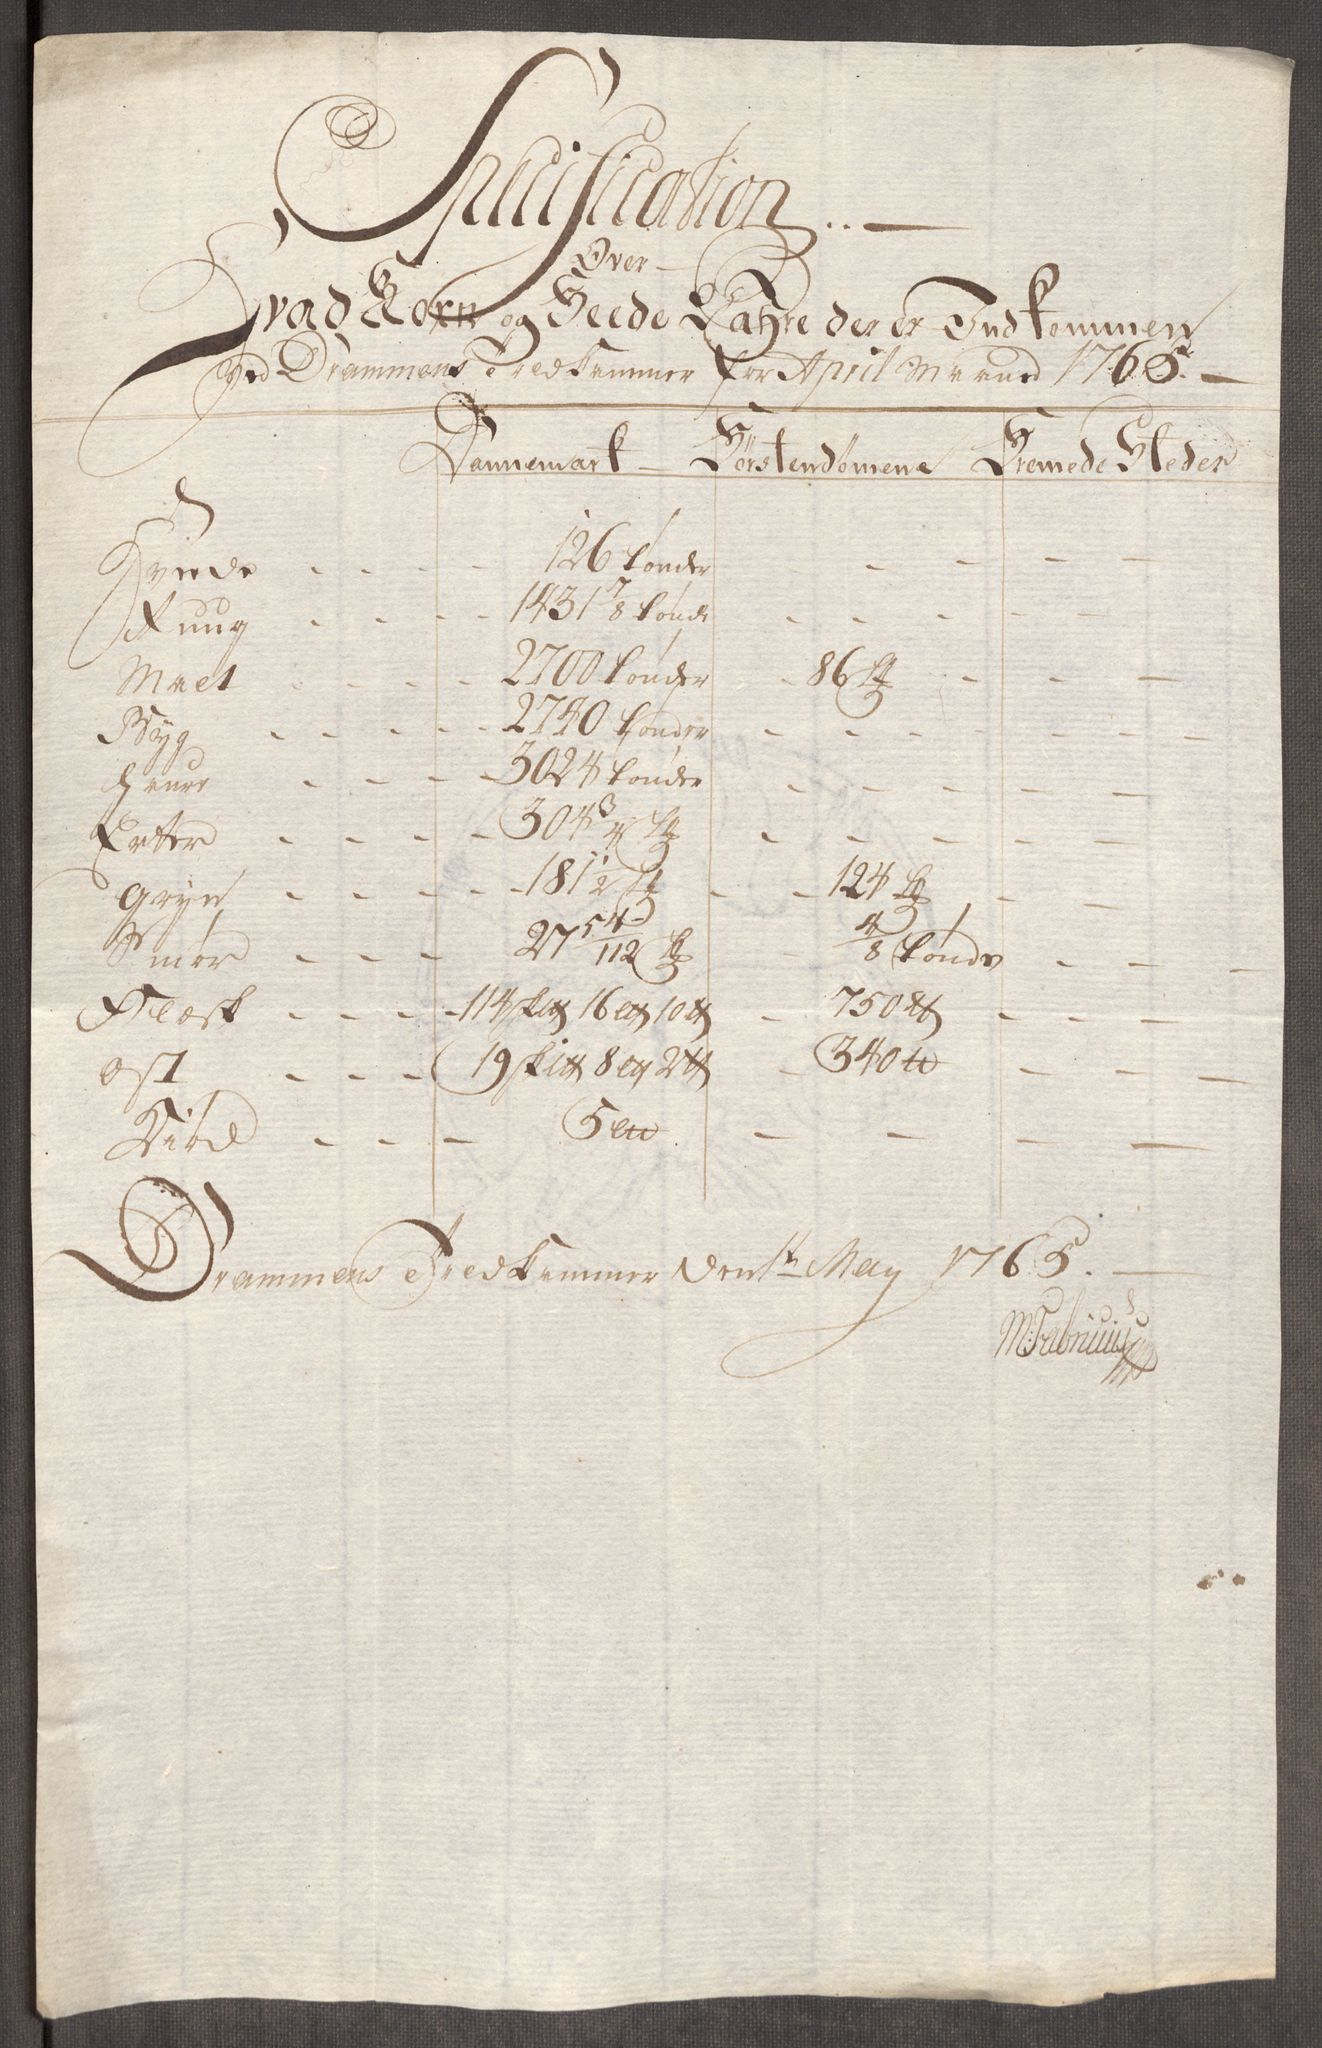 Specification
Over
Hvad Korn og Feede Vahre der er Indkommen
Ved Drammens Tredkammer for April Maaned 1765.
Dannemark Förstendömene Fremede Steder
Hvede 126 tønder
Rug 1431 7/8 tønde
Malt 2700 tønder 86 t
Byg 2740 tønder
Haure 3024 tønder
Erter 304 3/4 t
Gryn 181 1/2 t 124 t
Smør 27 54/112 t 4/8 tønde
Flesk 114 sk℔ 16 l℔ 10 ℔ 750 ℔
ost 19 sk℔ 8 l℔ 2 ℔ 340 ℔
Kiød 5 l℔
Drammens Tredkammer den 1t May 1765.
MFabricius